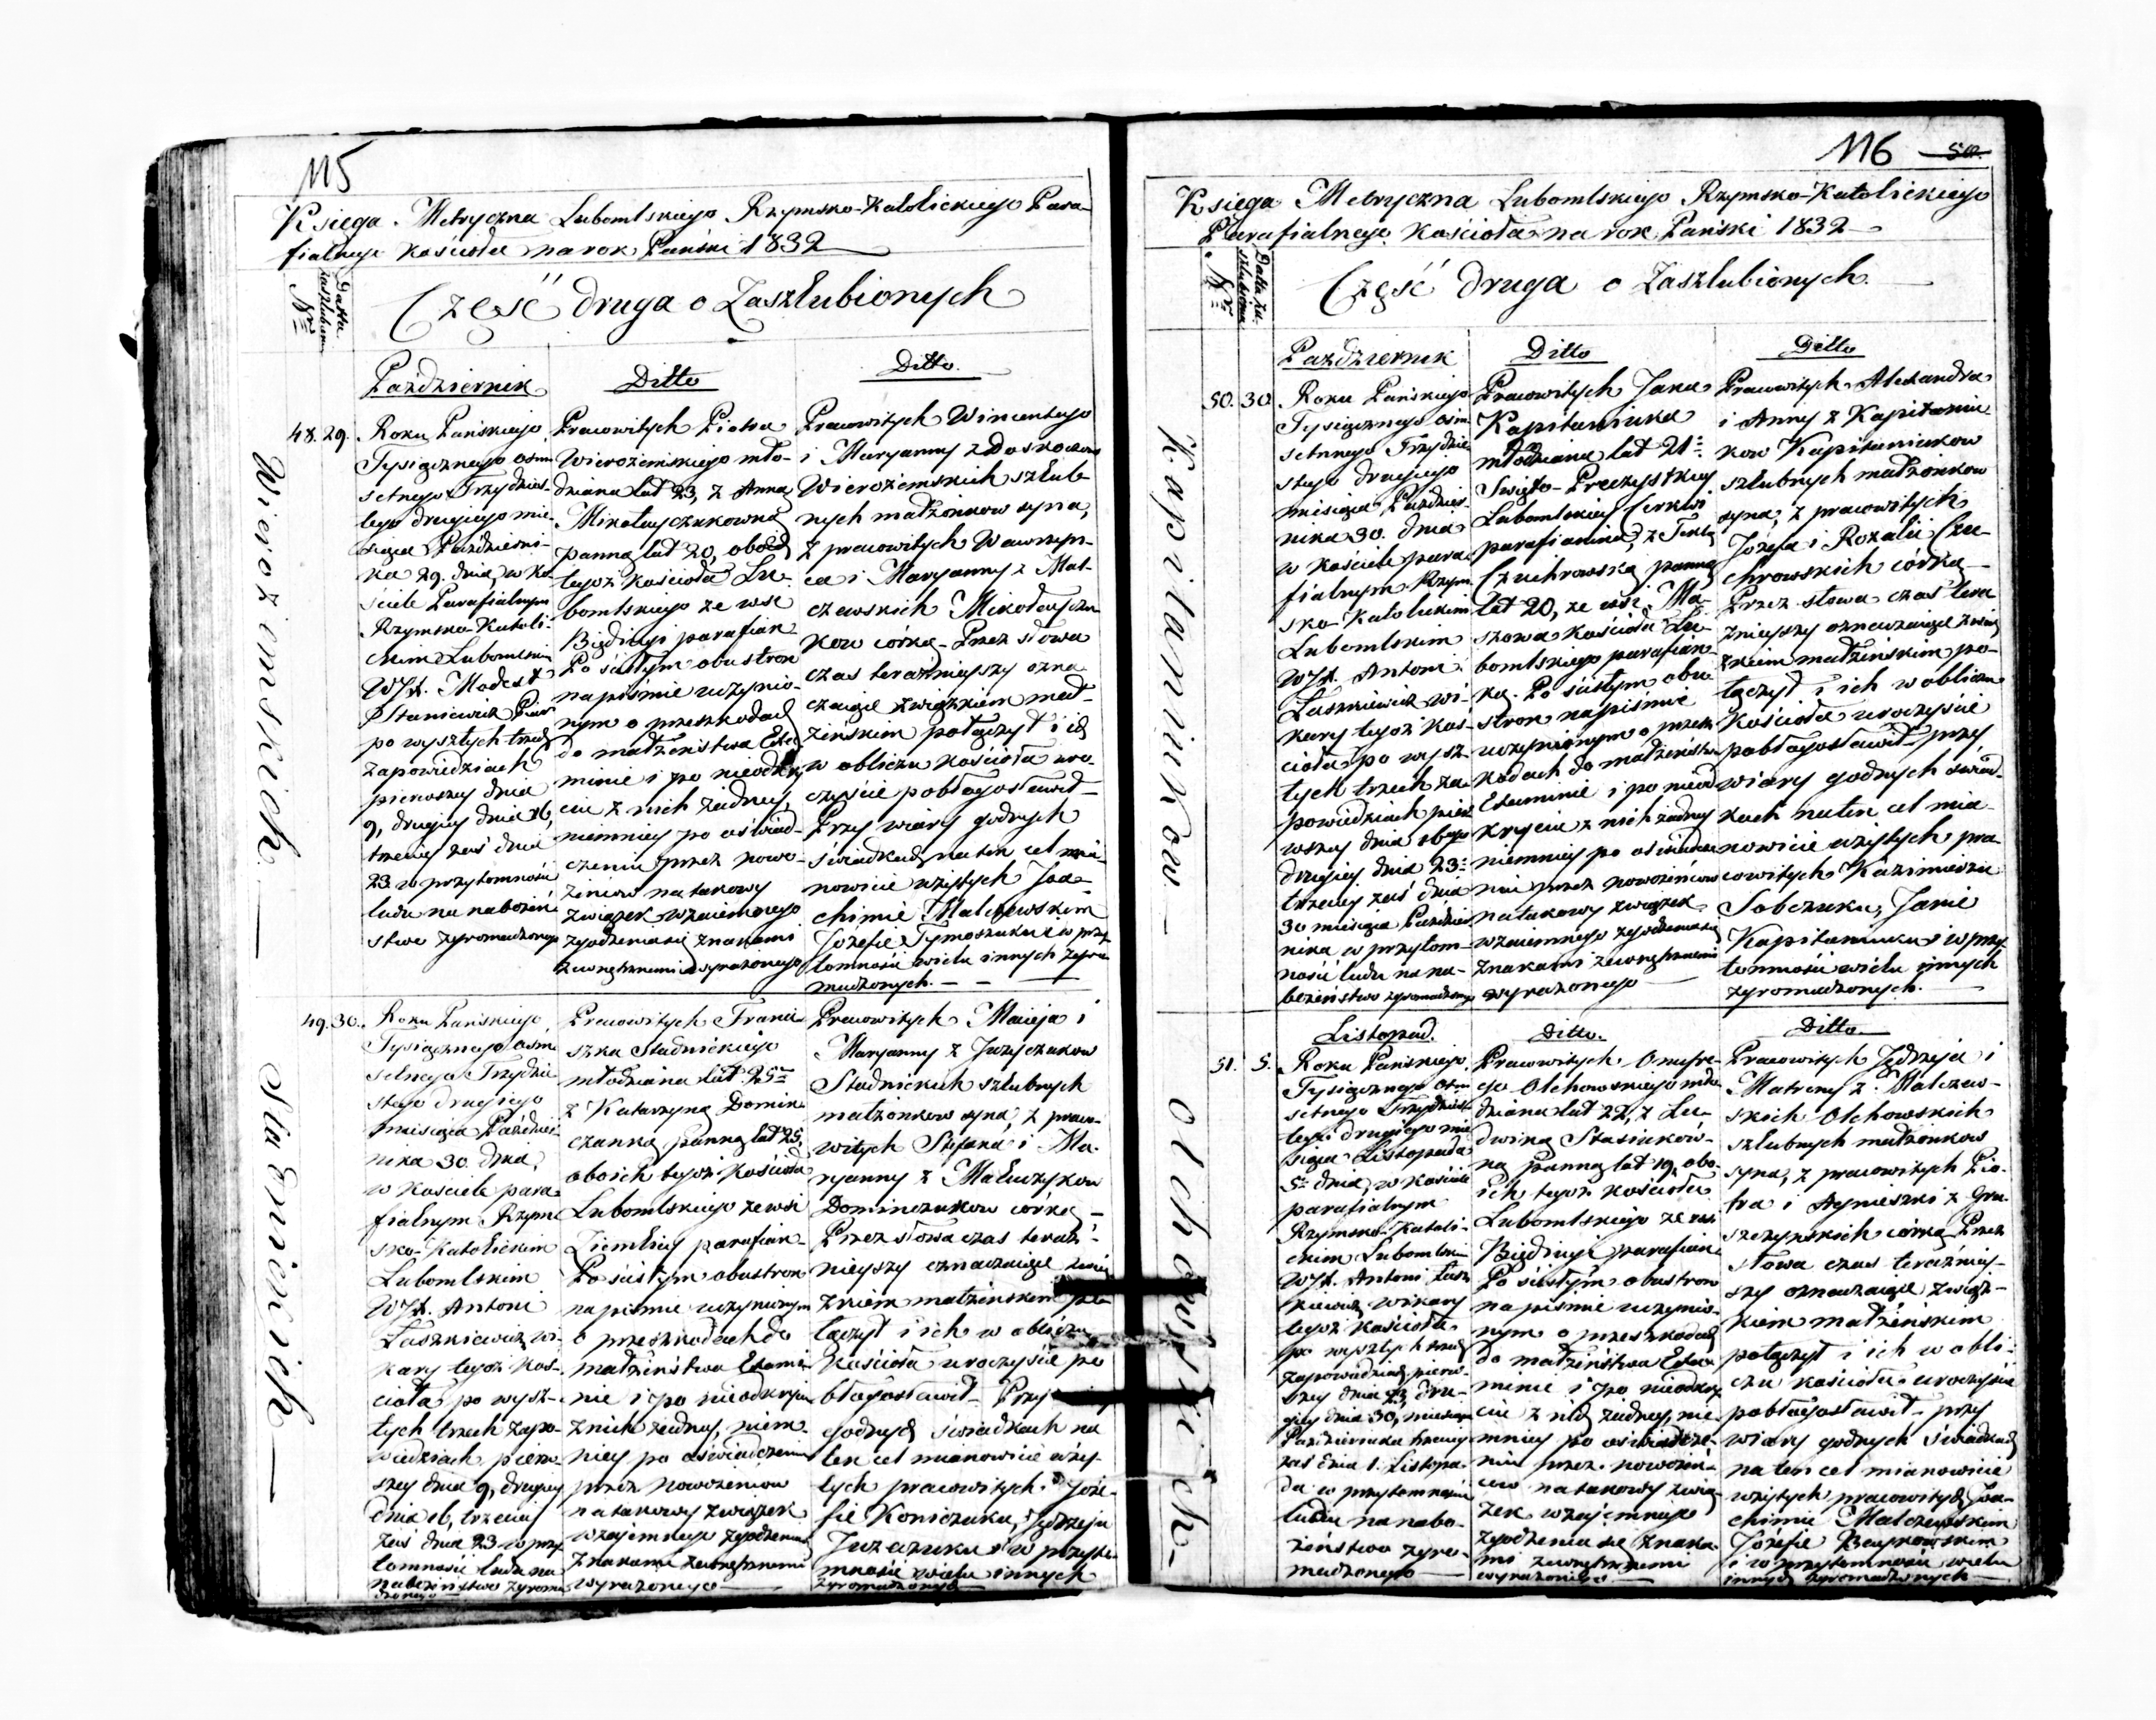 115
Księga Metryczna Lubomlskiego Rzymsko-Katolickiego Para-
fialnego Kościoła na rok Pański 1832
Nr
Datta zaszlubien
Część druga o Zaszlubionych
Październik
48. 29.
Wierozemskich
Roku Pańskiego
Tysiącznego osm
setnego Trzydzies-
tego drugiego mie-
siąca Październi-
ka 29. dnia, w Ko-
ściele Parafialnym
Rzymsko-Katoli-
ckim Lubomlskim
WJX. Modest
Staniewicz
po wyszłych trzech
zapowiedziach
pierwszey dnia
9, drugiey dnia 16,
trzeciey zaś dnia
23 w przytomności
ludu na nabożeń-
stwo zgromadzonego
Ditto
Pracowitych Piotra
Wierozemskiego mło-
dziana lat 23, z Anną
Mikołayczukowną
panną lat 20, oboch
tegoż Kościoła Lu-
bomlskiego ze wsi
parafian
Po ścisłym obustron
na piśmie uczynio-
nym o przeszkodach
do małżeństwa Exa-
minie i po nieodkry
ciu z nich żadney,
niemniey po oświad-
czeniu przez nowo-
żeńcow na takowy
związek wzaiemnego
zgodzenia się znakami
zewnętrznemi wyrażonego
Ditto.
Pracowitych Wincentego
i Maryanny z
Wierozemskich szlub-
nych małżonkow syna,
z pracowitych Wawrzyn-
ca i Maryanny z Mal-
czewskich Mikołayczu
kow córką - Przez słowa
czas teraźnieyszy ozna
czaiące związkiem mał-
żeńskim połączył i ich
w obliczu Kościoła uro-
czyście pobłogosławił
Przy wiary godnych
świadkach na ten cel mia-
nowicie użytych Joa-
chimie Malczewskim
Józefie Tymoszuku i w przy
tomności wielu innych zgro
madzonych.
49. 30.
Stadnickich
Roku Pańskiego
Tysiącznego osm
setnego Trzydzie
stego drugiego
miesiąca Paździer
nika 30. dnia,
w Kościele para
fialnym Rzym
sko-Katolickim
Lubomlskim
WJX. Antoni
Łaszkiewicz wi-
kary tegoż Koś-
cioła po wysz-
łych trzech zapo-
wiedziach pierw
szey dnia 9, drugiey
dnia 16, trzeciey
zaś dnia 23 w przy
tomności ludu na
nabożeństwo zgroma
dzonego
Pracowitych Franci
szka Stadnickiego
młodziana lat 25
z Katarzyną Domin
czanką panną lat 25,
oboich tegoż Kościoła
Lubomlskiego ze wsi
parafian
Po ścisłym obustron
na piśmie uczynionym
o przeszkodach do
małżeństwa Exami
nie i po nieodkryciu
z nich żadney, niem
niey po oświadczeniu
przez nowożeńcow
na takowy związek
wzajemnego zgodzenia
znakami zewnętrznemi
wyrażonego
Pracowitych Macieja i
Maryanny z
Stadnickich szlubnych
małżonkow syna, z praco-
witych Stefana i Ma-
ryanny z
Dominczukow córką
Przez słowa czas teraź-
nieyszy oznaczaiące zwią
zkiem małżeńskim po
łączył i ich w obliczu
Kościoła uroczyście po
błogosławił Przy
godnych świadkach na
ten cel mianowicie uży-
tych pracowitych Józe-
fie Koniczuku, Jędrzeju
i w przyto-
mności wielu innych
zgromadzonych
116 50.
Księga Metryczna Lubomlskiego Rzymsko-Katolickiego
Parafialnego Kościoła na rok Pański 1832
Nr
Datta zaszlubienia
Część druga o Zaszlubionych.
Październik
50. 30
Kapitaniukow
Roku Pańskiego
Tysiącznego osm
setnego Trzydzie
stego drugiego
miesiąca Paździer
nika 30. dnia
w Kościele para
fialnym Rzym
sko-Katolickim
Lubomlskim
WJX. Antoni
Łaszkiewicz wi-
kary tegoż Koś-
cioła po wysz-
łych trzech za-
powiedziach pier
wszey dnia 16go
drugiey dnia 23
trzeciey zaś dnia
30 miesiąca Paździer
nika w przytom-
ności ludu na na-
bożeństwo zgromadzonego
Ditto
Pracowitych Jana
Kapitaniuka
młodziana lat 21
Święto-Preczystkiey
Lubomlskiey Cerkwi
parafianina, z Teklą
Czuchrowską panną
lat 20, ze wsi Ma-
szowa Kościoła Lu-
bomlskiego parafian-
ką. Po ścisłym obu
stron na piśmie
uczynionym o przesz
kodach do małżeństwa
Examinie i po nieod
kryciu z nich żadney
niemniey po oświadcze
niu przez nowożeńcow
na takowy związek
wzaiemnego zgodzenia się
znakami zewnętrznemi
wyrażonego
Ditto
Pracowitych Alexandra
i Anny z Kapitaniu
kow Kapitaniukow
szlubnych małżonkow
syna, z pracowitych
Józefa i Rozalii Czu-
chrowskich córką
Przez słowa czas tera
źnieyszy oznaczaiące zwią
zkiem małżeńskim po-
łączył i ich w obliczu
Kościoła uroczyście
pobłogosławił przy
wiary godnych świad-
kach na ten cel mia-
nowicie użytych pra-
cowitych Kazimierzu
Sobczuku, Janie
Kapitaniuku i w przy
tomności wielu innych
zgromadzonych.
Listopad.
51. 5.
Olchowskich
Roku Pańskiego
Tysiącznego osm
setnego Trzydzies
tego drugiego mie
siąca Listopada
5 dnia, w Kościele
parafialnym
Rzymsko-Katoli-
ckim Lubomlskim
WJX. Antoni Łasz
kiewicz wikary
tegoż Kościoła
po wyszłych trzech
zapowiedziach pierw-
szey dnia 23, dru-
giey dnia 30, miesiąca
Października trzeciey
zaś dnia 1. Listopa-
da w przytomności
ludu na nabo-
żeństwo zgro-
madzonego
Ditto.
Pracowitych Onufre-
go Olchowskiego mło
dziana lat 22, z Lu-
dwiką Stasiuków-
ną panną lat 19, obo-
ich tegoż Kościoła
Lubomlskiego ze wsi
parafian
Po ścisłym obustron
na piśmie uczynio-
nym o przeszkodach
do małżeństwa Exa
minie i po nieodkry
ciu z nich żadney, nie
mniey po oświadcze-
niu przez nowożeń-
cow na takowy zwią
zek wzajemnego
zgodzenia się znaka
mi zewnętrznemi
wyrażonego
Ditto.
Pracowitych Jędrzeja i
Matrony z Malczew-
skich Olchowskich
szlubnych małżonkow
syna, z pracowitych Pio-
tra i Agnieszki z
córką Przez
słowa czas teraźniey-
szy oznaczaiące związ-
kiem małżeńskim
połączył i ich w obli-
czu Kościoła uroczyście
pobłogosławił przy
wiary godnych świadkach
na ten cel mianowicie
użytych pracowitych Joa-
chimie Malczewskim
Józefie
i w przytomności wielu
innych zgromadzonych